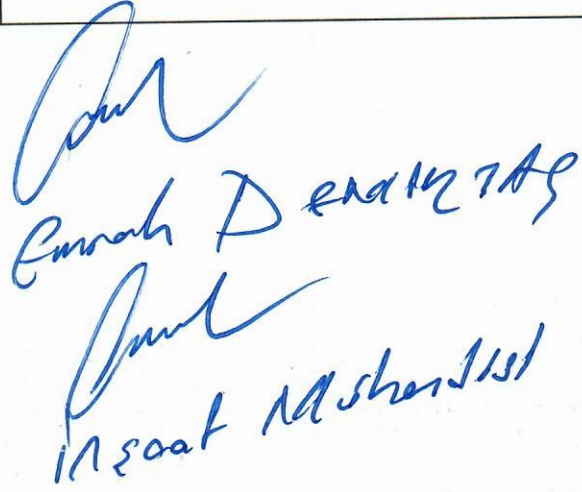 Emrah DEMİRTAŞ
İnşaat Mühendisi